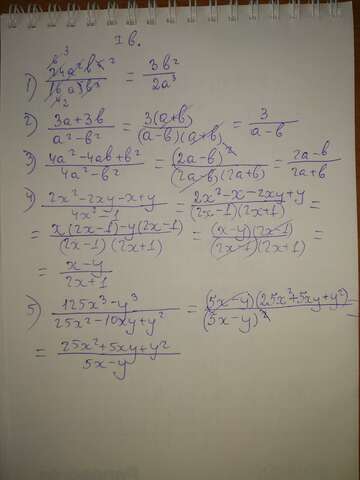 I в.
1) 24a²b⁴ / 16a⁵b² = 3b² / 2a³
2) 3a+3b / a²-b² = 3(a+b) / (a-b)(a+b) = 3 / a-b
3) 4a²-4ab+b² / 4a²-b² = (2a-b)² / (2a-b)(2a+b) = 2a-b / 2a+b
4) 2x²-2xy-x+y / 4x²-1 = 2x²-x-2xy+y / (2x-1)(2x+1) =
= x(2x-1)-y(2x-1) / (2x-1)(2x+1) = (x-y)(2x-1) / (2x-1)(2x+1) =
= x-y / 2x+1
5) 125x³-y³ / 25x²-10xy+y² = (5x-y)(25x²+5xy+y²) / (5x-y)² =
= 25x²+5xy+y² / 5x-y